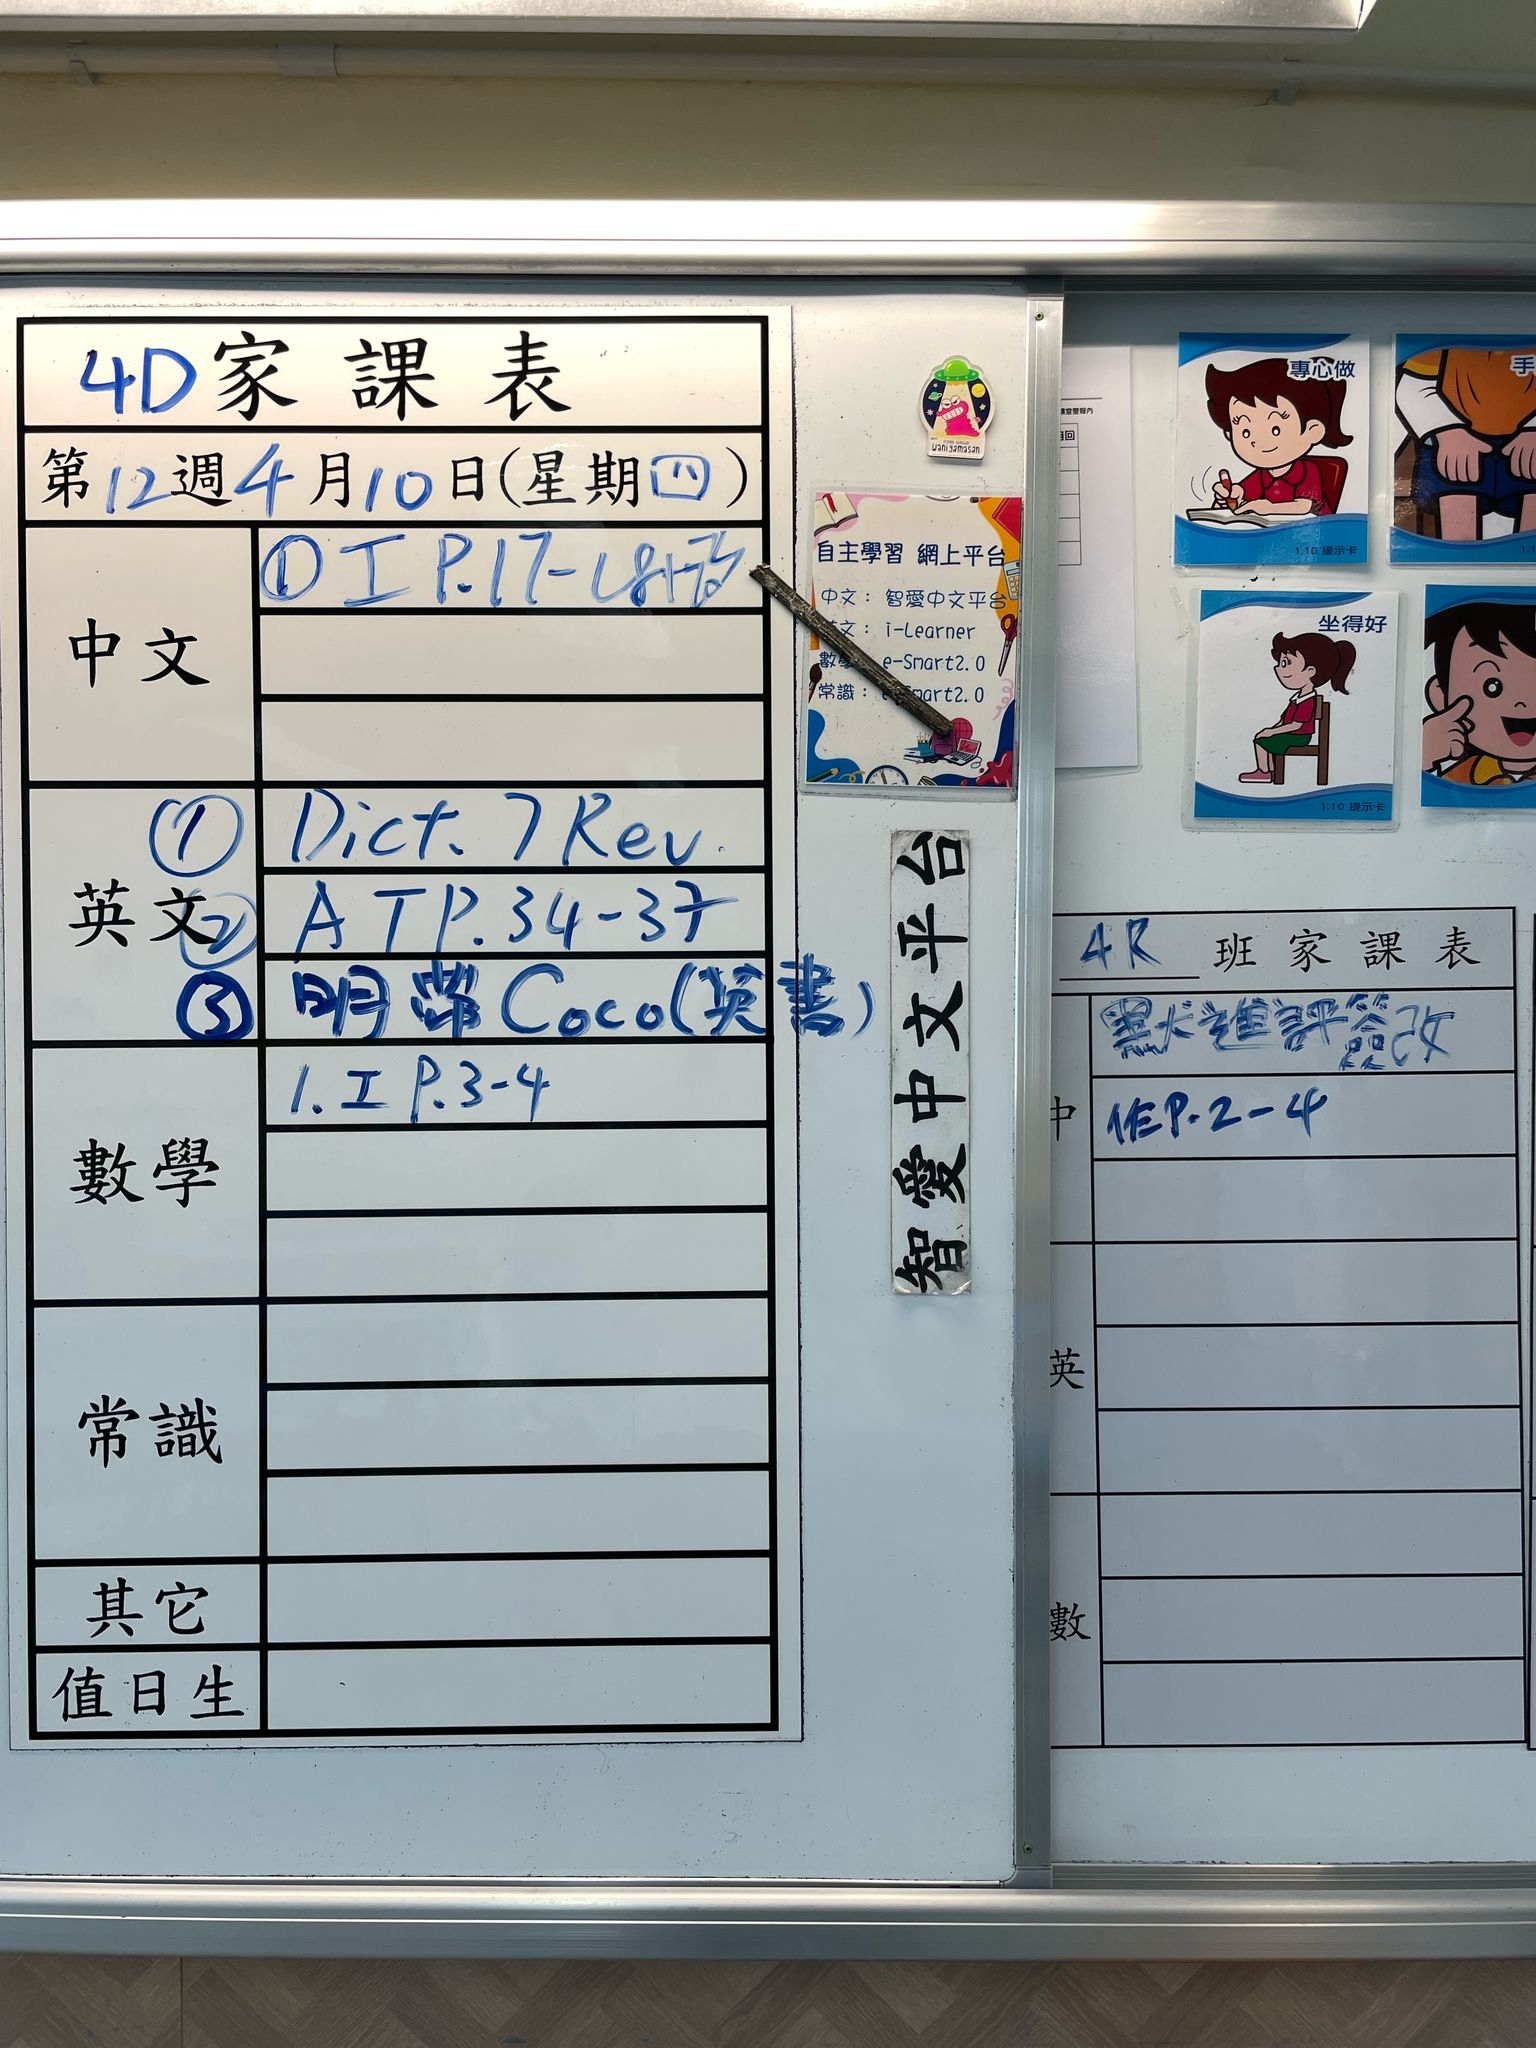 4D家課表
第12週4月10日(星期四)
中文
① 工 P.17-18
英文
① Dict. 7 Rev.
② A T P.34-37
③ 明帶 Coco(英書)
數學
1. 工 P.3-4
常識
其它
值日生
wanigamasan
自主學習 網上平台
中文： 智愛中文平台
英文： i-Learner
數學： e-Smart2.0
常識： e-Smart2.0
智愛中文平台
專心做
1.10 提示卡
手
坐得好
1.10 提示卡
4R 班家課表
中
默進評簽改
作P.2-4
英
數